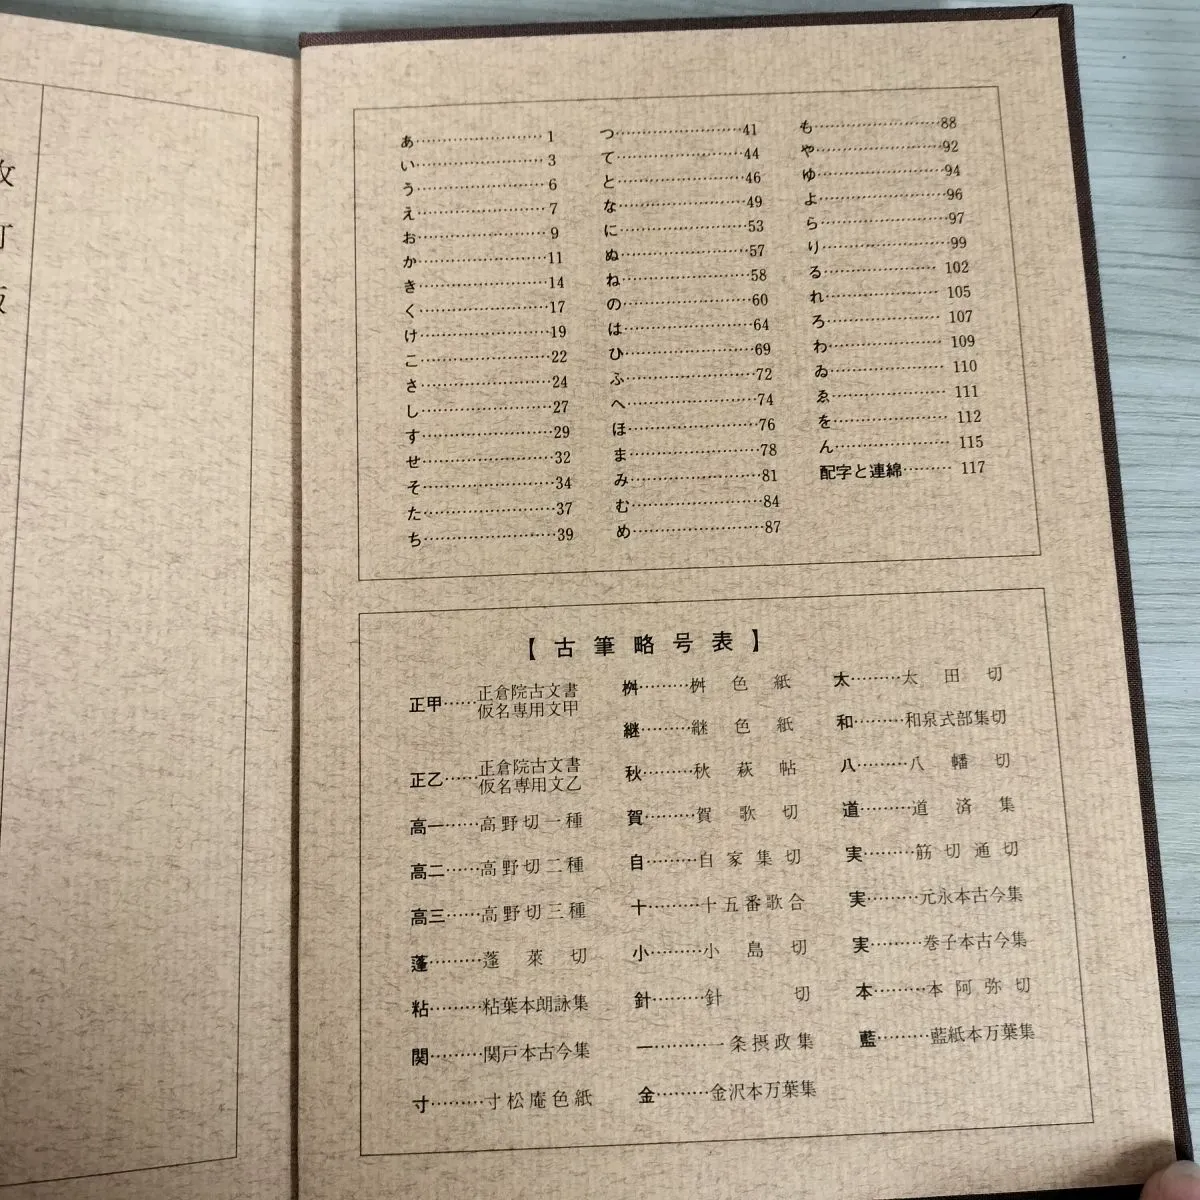 改
訂
版
あ……………………1
い……………………3
う……………………6
え……………………7
お……………………9
か……………………11
き……………………14
く……………………17
け……………………19
こ……………………22
さ……………………24
し……………………27
す……………………29
せ……………………32
そ……………………34
た……………………37
ち……………………39
つ……………………41
て……………………44
と……………………46
な……………………49
に……………………53
ぬ……………………57
ね……………………58
の……………………60
は……………………64
ひ……………………69
ふ……………………72
へ……………………74
ほ……………………76
ま……………………78
み……………………81
む……………………84
め……………………87
も……………………88
や……………………92
ゆ……………………94
よ……………………96
ら……………………97
り……………………99
る……………………102
れ……………………105
ろ……………………107
わ……………………109
ゐ……………………110
ゑ……………………111
を……………………112
ん……………………115
配字と連綿………117
【古筆略号表】
正甲……正倉院古文書
仮名専用文甲
正乙……正倉院古文書
仮名専用文乙
高一……高野切一種
高二……高野切二種
高三……高野切三種
蓬………蓬萊切
粘………粘葉本朗詠集
関………関戸本古今集
寸………寸松庵色紙
桝………桝色紙
継………継色紙
秋………秋萩帖
賀………賀歌切
自………自家集切
十………十五番歌合
小………小島切
針………針切
一………一条摂政集
金………金沢本万葉集
太………太田切
和………和泉式部集切
八………八幡切
道………道済集
実………筋切通切
実………元永本古今集
実………巻子本古今集
本………本阿弥切
藍………藍紙本万葉集